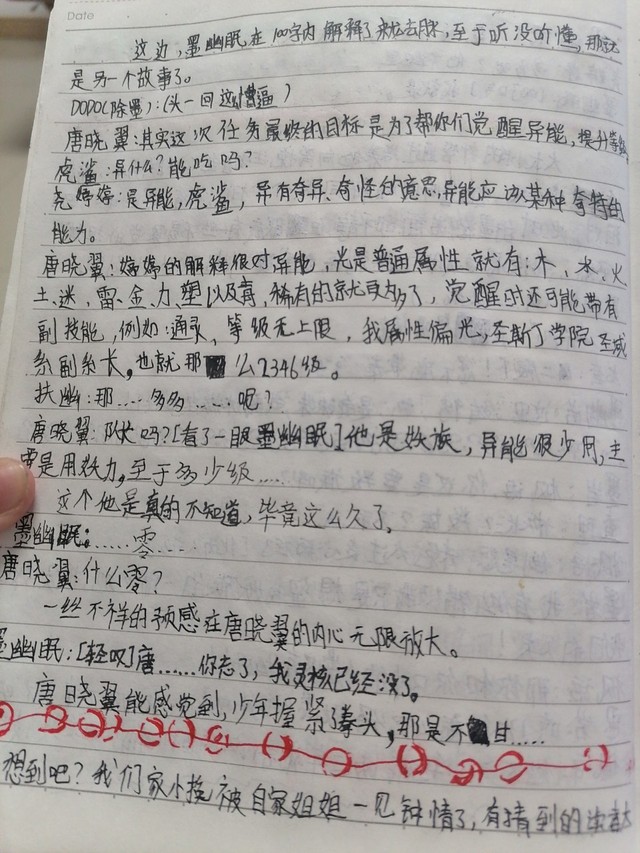 Date
这边，墨幽眠在100字内解释了就去睡，至于听没听懂，那就
是另一个故事了。
DODO(除墨)：(头一回这么憋逼)
唐晓翼：其实这次任务最终的目标是为了帮你们觉醒异能，提升等级
虎鲨：异什么？能吃吗？
尧婷婷：是异能，虎鲨，异有奇异、奇怪的意思，异能应该某种奇特的
能力。
唐晓翼：婷婷的解释很对，异能，光是普通属性就有：木、水、火
土、迷、雷、金、力、塑以及育，稀有的就更多了，觉醒时还可能带有
副技能，例如：通灵，等级无上限，我属性偏光，圣斯丁学院圣城
系副系长，也就那么2346级。
扶幽：那……多多……呢？
唐晓翼：队长吗？[看了一眼墨幽眠]他是妖族，异能很少用，主
要是用妖力，至于多少级……
这个他是真的不知道，毕竟这么久了。
墨幽眠：……零……
唐晓翼：什么零？
一丝不祥的预感在唐晓翼的内心无限放大。
墨幽眠：[轻叹]唐……你忘了，我灵核已经没了。
唐晓翼能感觉到，少年握紧了拳头，那是不甘……
想到吧？我们家小挽被自家姐姐一见钟情了，有猜到的